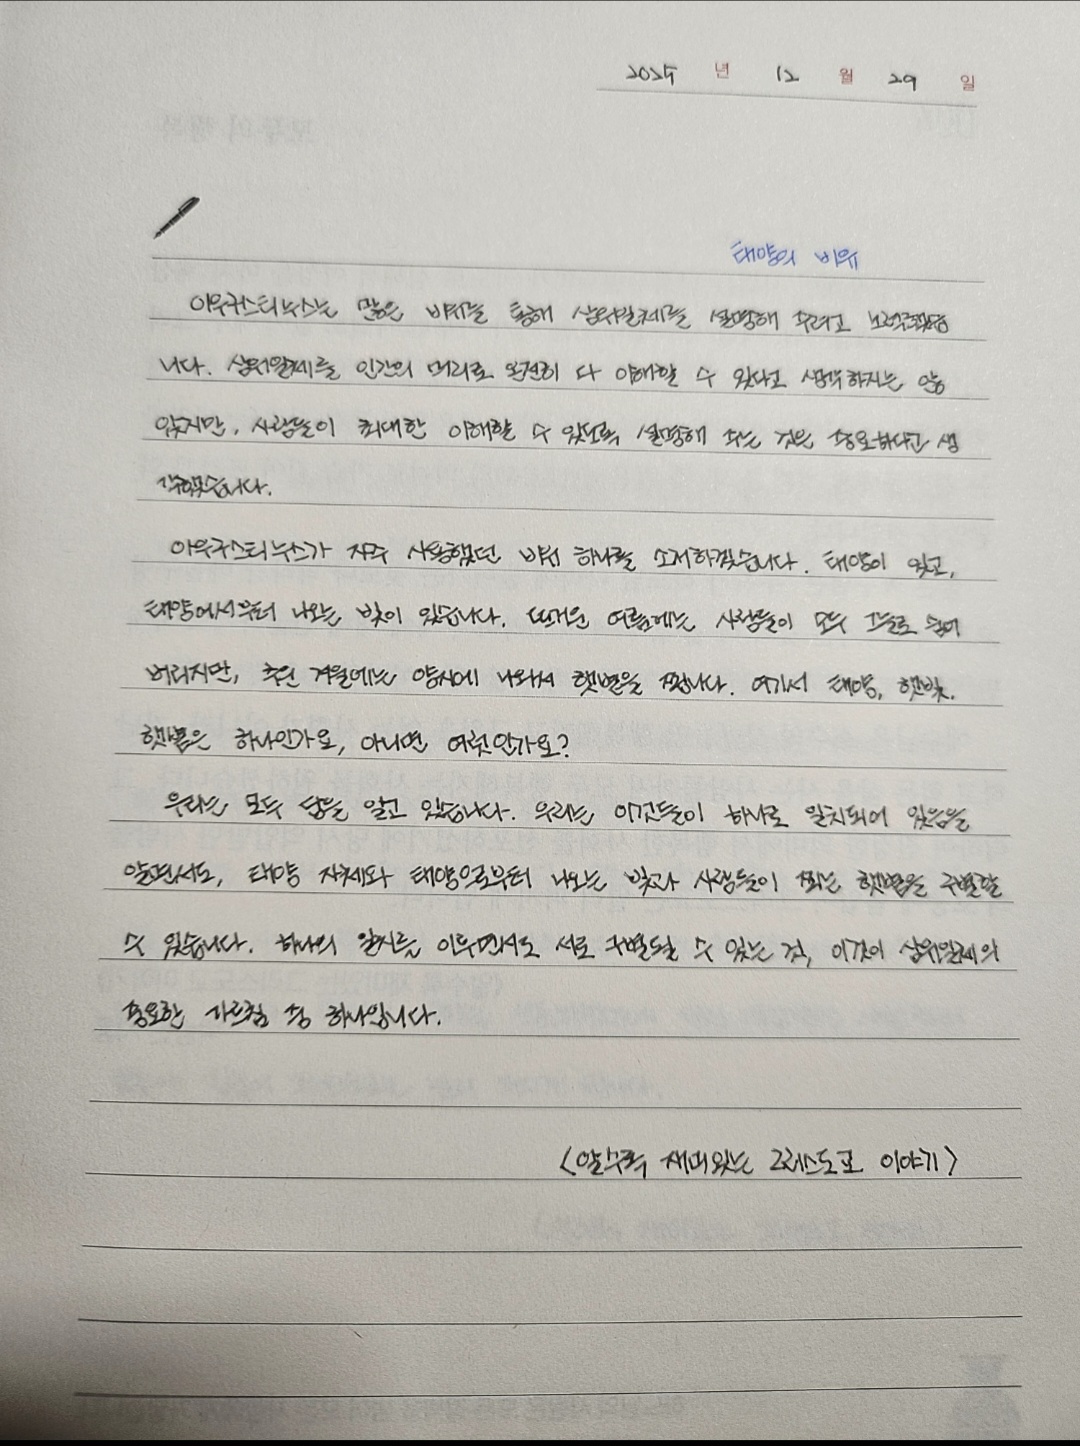 2025 년 12 월 29 일
태양의 비유
아우구스티누스는 많은 비유를 통해 삼위일체를 설명해 주려고 노력했습
니다. 삼위일체를 인간의 머리로 완전히 다 이해할 수 있다고 생각하지는 않
았지만, 사람들이 최대한 이해할 수 있도록 설명해 주는 것은 중요하다고 생
각했습니다.
아우구스티누스가 자주 사용했던 비유 하나를 소개하겠습니다. 태양이 있고,
태양에서부터 나오는 빛이 있습니다. 뜨거운 여름에는 사람들이 모두 그늘로 숨어
버리지만, 추운 겨울에는 양지에 나와서 햇볕을 쬡니다. 여기서 태양, 햇빛,
햇볕은 하나인가요, 아니면 여럿인가요?
우리는 모두 답을 알고 있습니다. 우리는 이것들이 하나로 일치되어 있음을
알면서도, 태양 자체와 태양으로부터 나오는 빛과 사람들이 쬐는 햇볕을 구별할
수 있습니다. 하나의 일치를 이루면서도 서로 구별될 수 있는 것, 이것이 삼위일체의
중요한 가르침 중 하나입니다.
<알수록 재미있는 그리스도교 이야기>